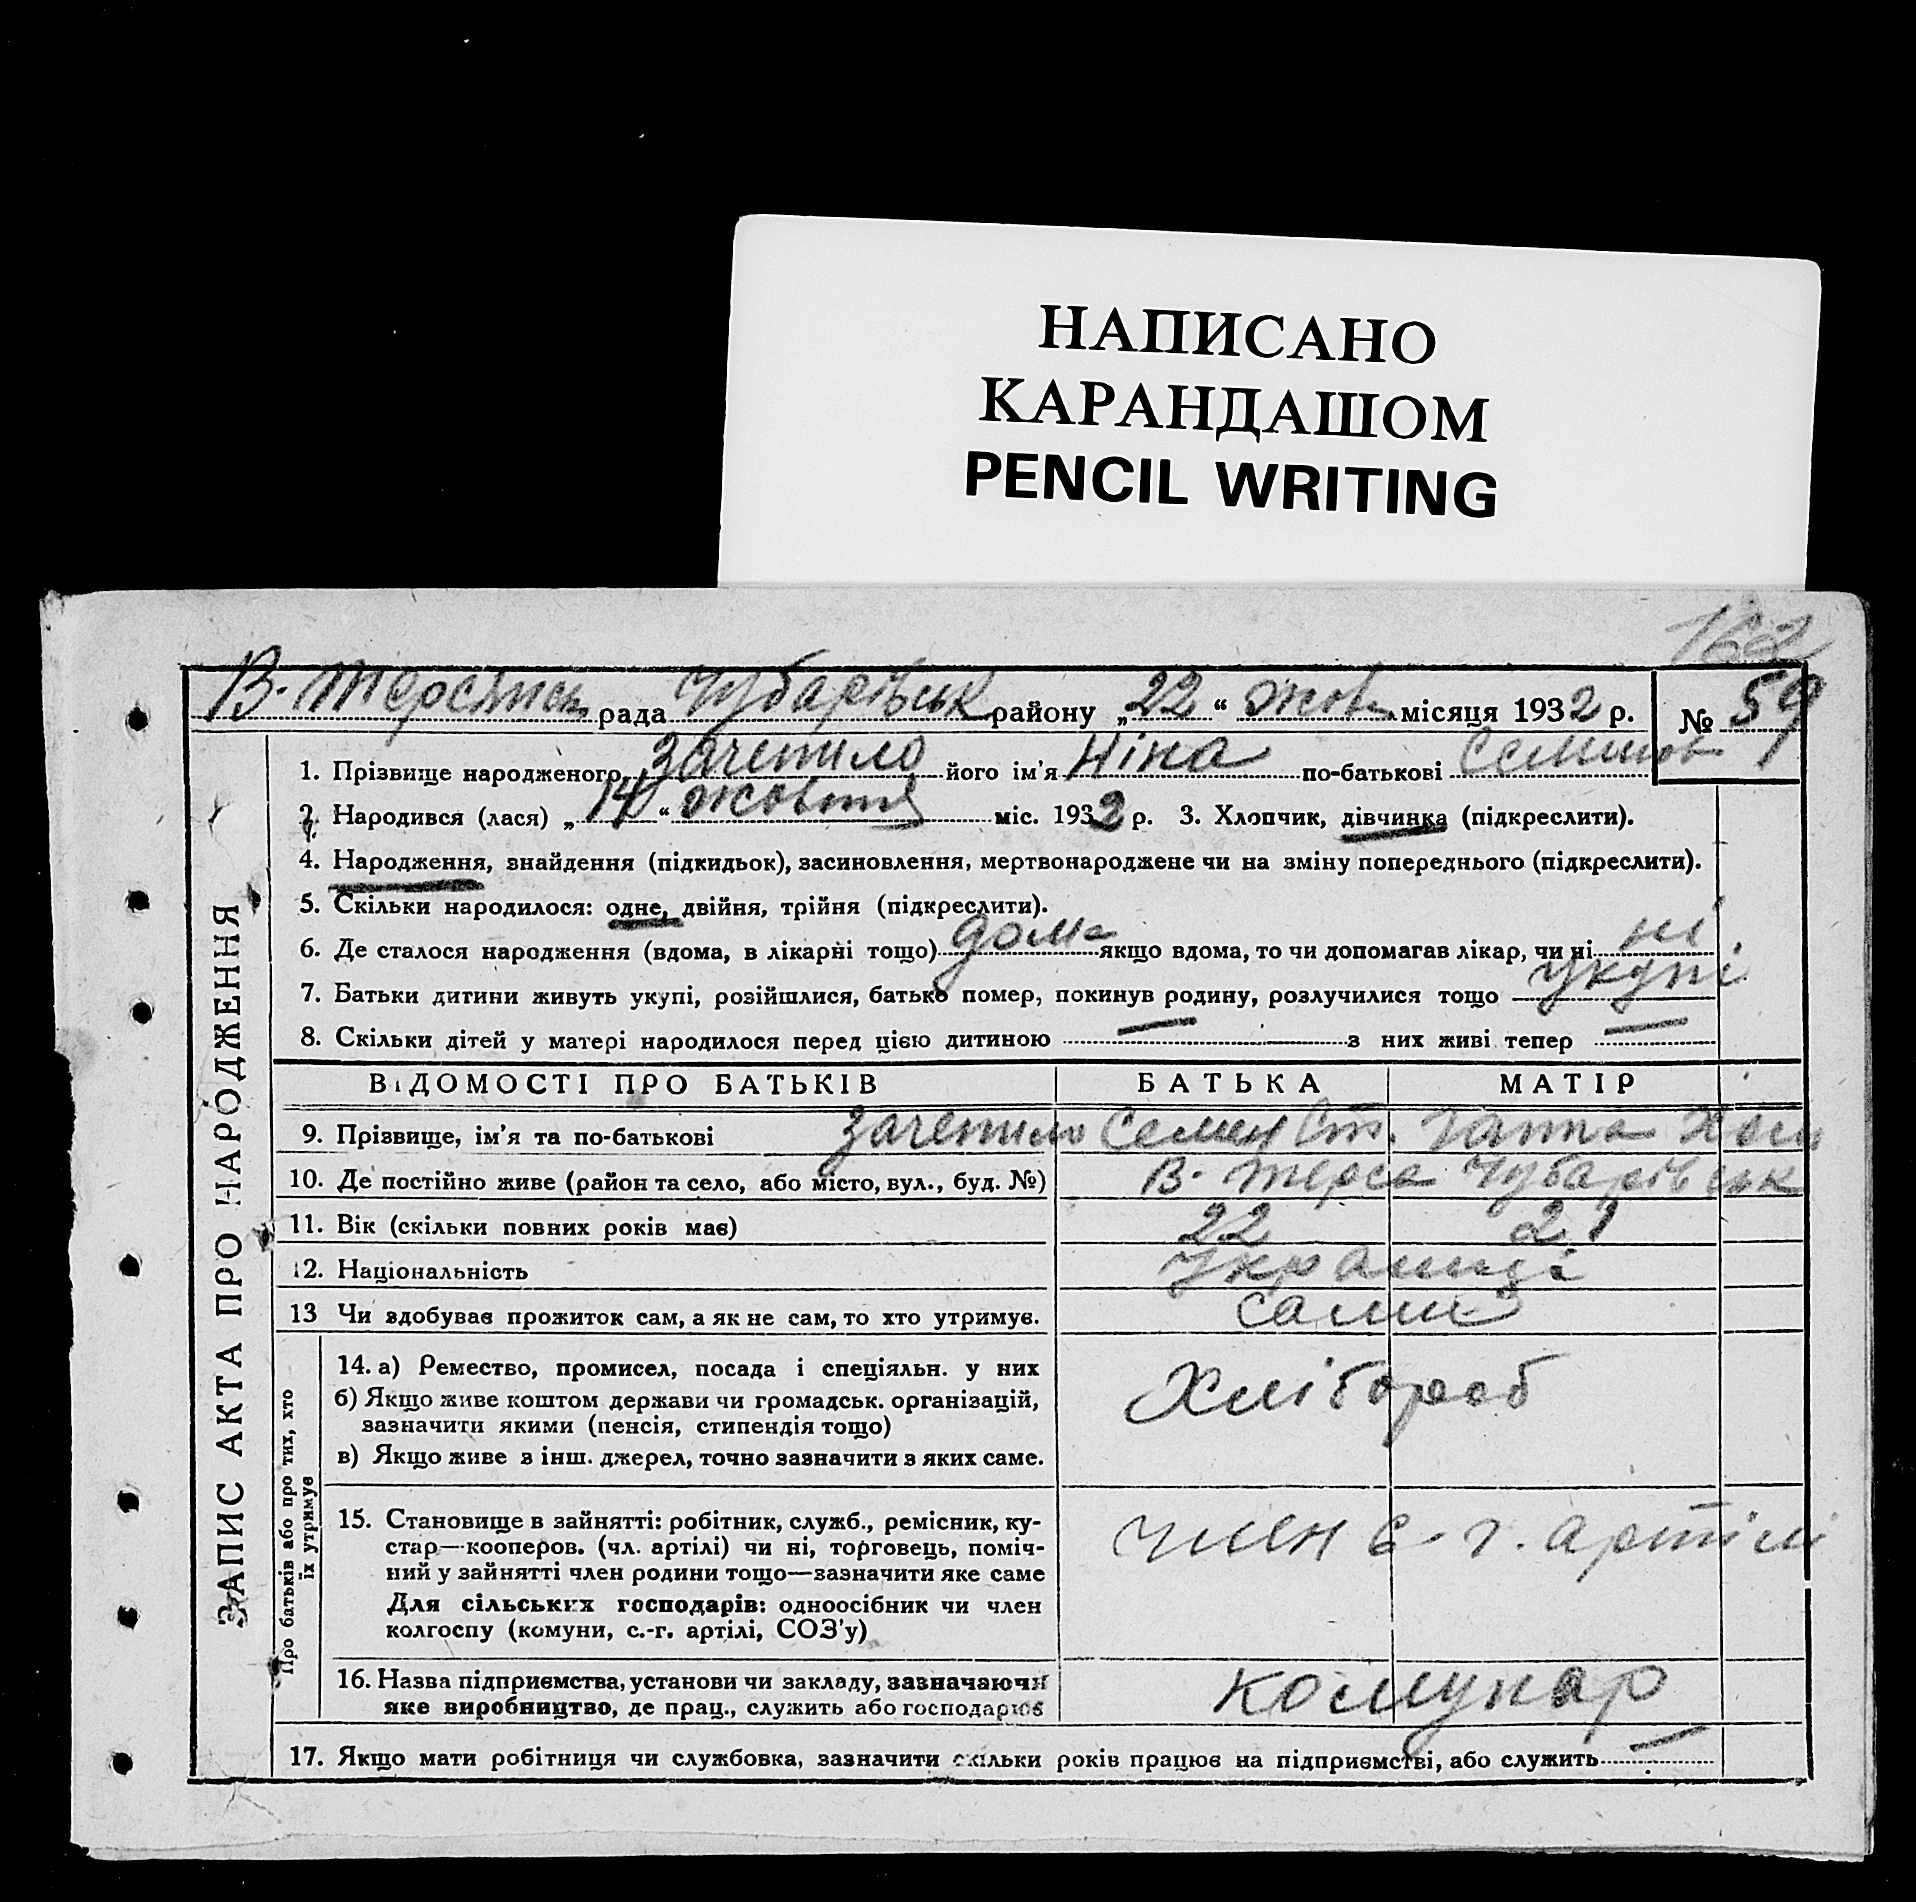 НАПИСАНО
КАРАНДАШОМ
PENCIL WRITING
162
В. Терсянськ рада Чубарівськ району „22“ жовт місяця 1932 р. № 59
1. Прізвище народженого Зачепило його ім’я Ніна по-батькові Семенов
2. Народився (лася) „14“ жовтня міс. 1932 р. 3. Хлопчик, дівчинка (підкреслити).
4. Народження, знайдення (підкидьок), засиновлення, мертвонароджене чи на зміну попереднього (підкреслити).
5. Скільки народилося: одне, двійня, трійня (підкреслити).
6. Де сталося народження (вдома, в лікарні тощо) дома якщо вдома, то чи допомагав лікар, чи ні ні
7. Батьки дитини живуть укупі, розійшлися, батько помер, покинув родину, розлучилися тощо укупі
8. Скільки дітей у матері народилося перед цією дитиною — з них живі тепер —
ЗАПИС АКТА ПРО НАРОДЖЕННЯ
ВІДОМОСТІ ПРО БАТЬКІВ БАТЬКА МАТІР
9. Прізвище, ім’я та по-батькові Зачепило Семен Ст. Ганна
10. Де постійно живе (район та село, або місто, вул., буд. №) В. Терса Чубарівськ
11. Вік (скільки повних років має) 22 21
12. Національність Українці
13 Чи здобуває прожиток сам, а як не сам, то хто утримує. сами
Про батьків або про тих, хто
їх утримує
14. а) Ремество, промисел, посада і спеціяльн. у них Хлібороб
б) Якщо живе коштом держави чи громадськ. організацій,
зазначити якими (пенсія, стипендія тощо)
в) Якщо живе з інш. джерел, точно зазначити з яких саме.
15. Становище в зайнятті: робітник, служб., ремісник, ку-
стар—кооперов. (чл. артілі) чи ні, торговець, поміч-
ний у зайнятті член родини тощо—зазначити яке саме
член с. г. артілі
Для сільських господарів: одноосібник чи член
колгоспу (комуни, с.-г. артілі, СОЗ’у)
16. Назва підприємства, установи чи закладу, зазначаючи
яке виробництво, де прац., служить або господарює
комунар
17. Якщо мати робітниця чи службовка, зазначити скільки років працює на підприємстві, або служить —